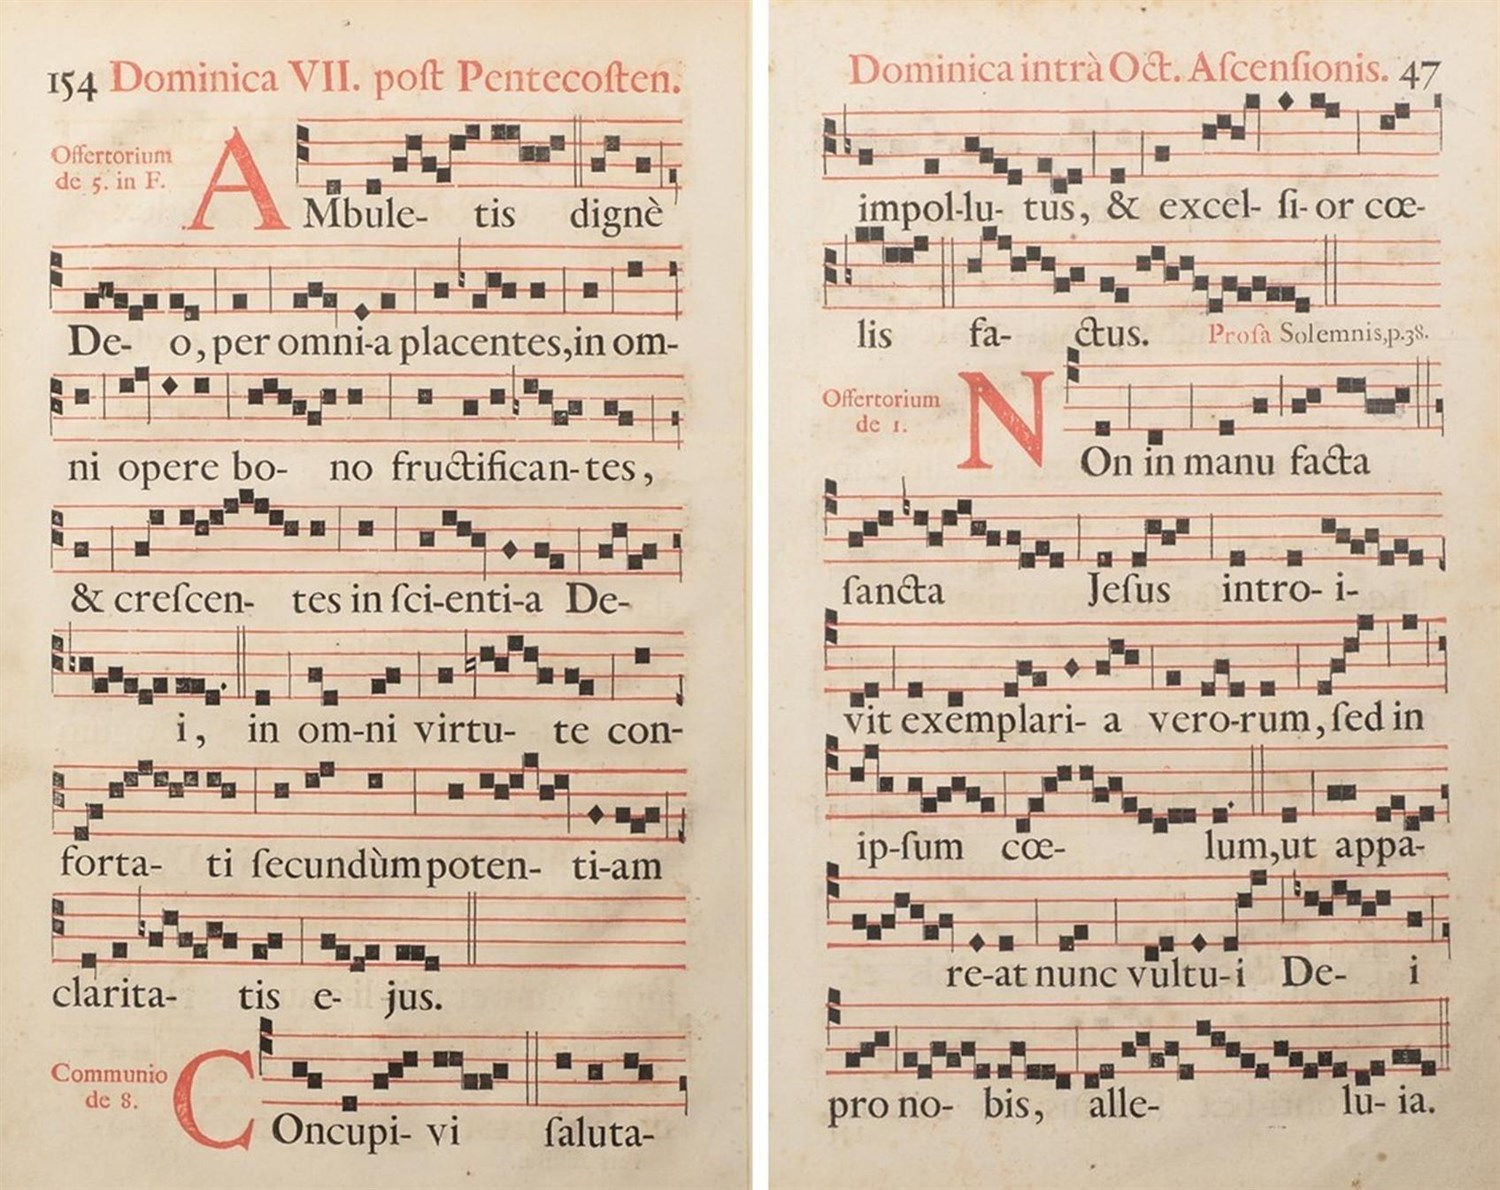 154 Dominica VII. poſt Pentecoſten.
Offertorium
de 5. in F.
AMbule- tis dignè
De- o, per omni-a placentes, in om-
ni opere bo- no fructifican-tes,
& creſcen- tes in ſci-enti-a De-
i, in om-ni virtu- te con-
forta- ti ſecundùm poten- ti-am
clarita- tis e- jus.
Communio
de 8.
COncupi- vi ſaluta-
Dominica intrà Oct. Aſcenſionis. 47
impol-lu- tus, & excel- ſi-or cœ-
lis fa- ctus. Proſa Solemnis, p.38.
Offertorium
de 1.
NOn in manu facta
ſancta Jeſus intro- i-
vit exemplari- a vero-rum, ſed in
ip-ſum cœ- lum, ut appa-
re-at nunc vultu-i De- i
pro no- bis, alle- lu- ia.